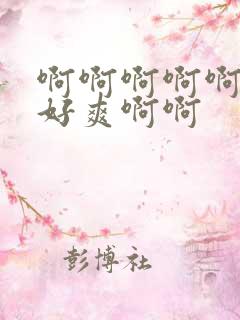 啊啊啊啊啊
好爽啊啊
彭博社